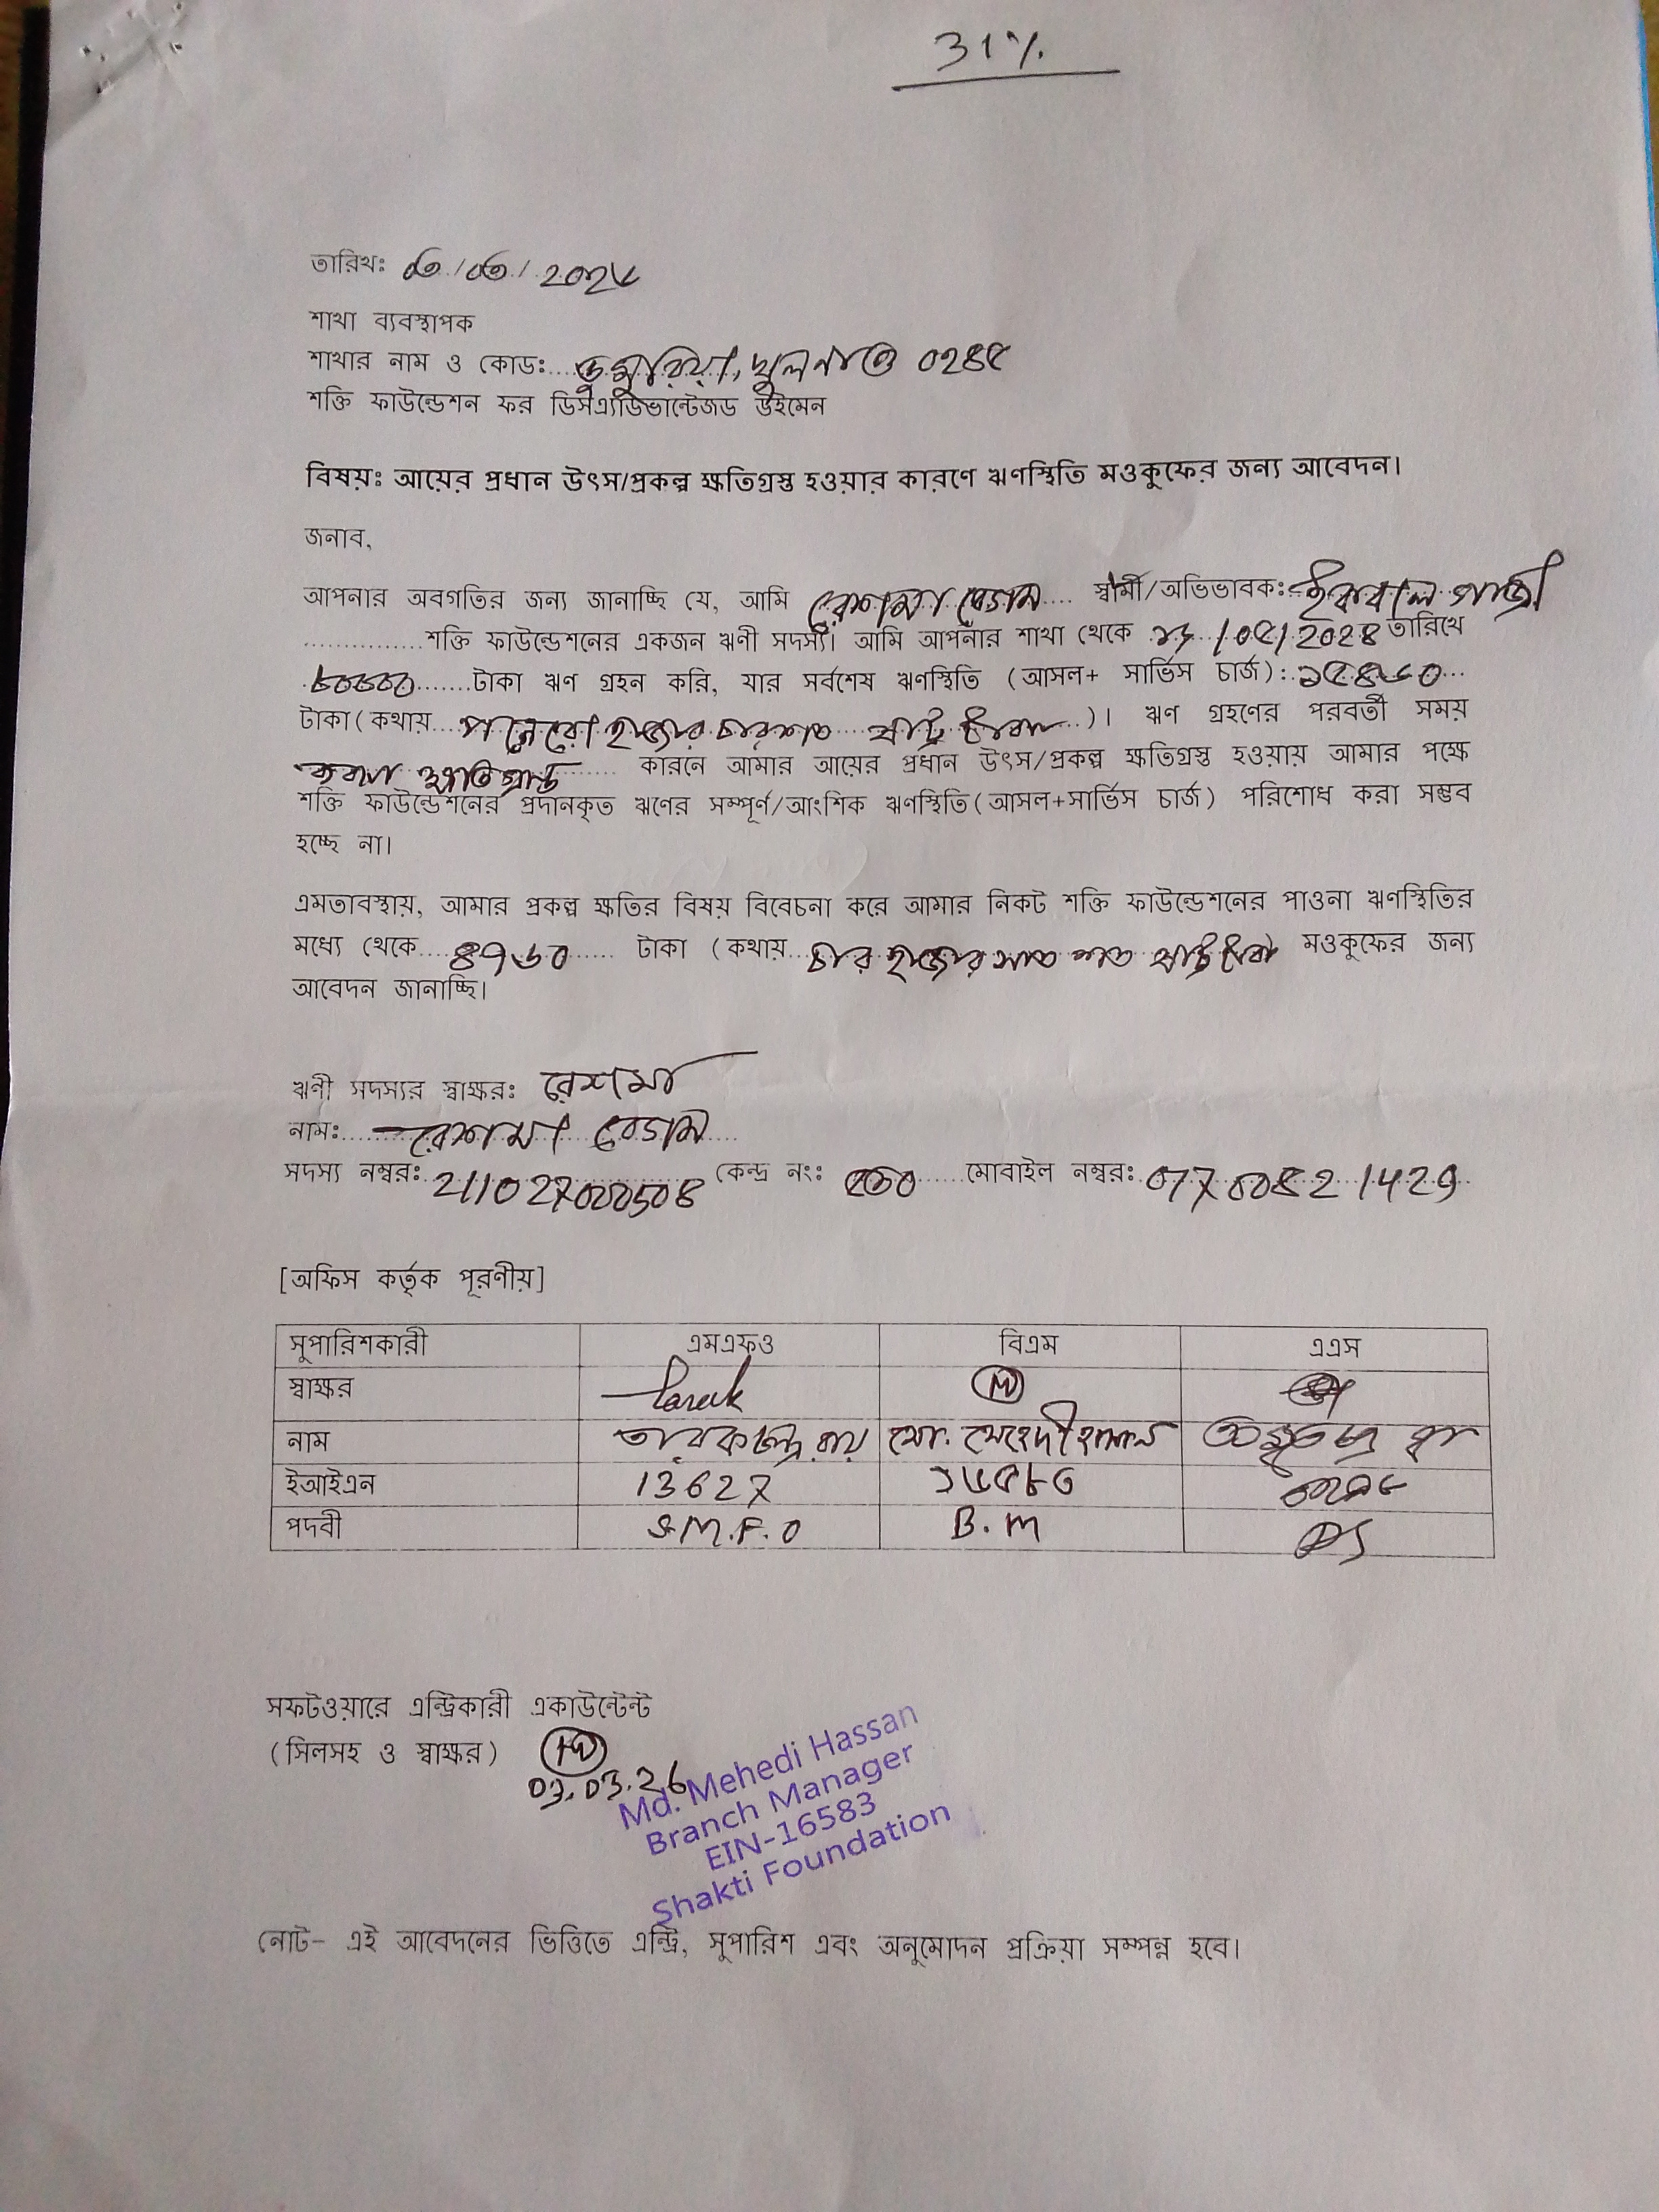 31%
তারিখঃ ০৩/০৩/২০২৬
শাখা ব্যবস্থাপক
শাখার নাম ও কোড: ডুমুরিয়া, খুলনা ০২৪৫
শক্তি ফাউন্ডেশন ফর ডিসএ্যাডভান্টেজড উইমেন
বিষয়ঃ আয়ের প্রধান উৎস/প্রকল্প ক্ষতিগ্রস্ত হওয়ার কারণে ঋণস্থিতি মওকুফের জন্য আবেদন।
জনাব,
আপনার অবগতির জন্য জানাচ্ছি যে, আমি রেশমা বেগম স্বামী/অভিভাবক: গাজী
শক্তি ফাউন্ডেশনের একজন ঋণী সদস্য। আমি আপনার শাখা থেকে /০৫/২০২৪ তারিখে
টাকা ঋণ গ্রহন করি, যার সর্বশেষ ঋণস্থিতি (আসল+ সার্ভিস চার্জ): ১৫৪৬০
টাকা (কথায় পনেরো হাজার চারশত ষাট টাকা)। ঋণ গ্রহণের পরবর্তী সময়
ক্ষতিগ্রস্ত কারনে আমার আয়ের প্রধান উৎস/প্রকল্প ক্ষতিগ্রস্ত হওয়ায় আমার পক্ষে
শক্তি ফাউন্ডেশনের প্রদানকৃত ঋণের সম্পূর্ণ/আংশিক ঋণস্থিতি (আসল+সার্ভিস চার্জ) পরিশোধ করা সম্ভব
হচ্ছে না।
এমতাবস্থায়, আমার প্রকল্প ক্ষতির বিষয় বিবেচনা করে আমার নিকট শক্তি ফাউন্ডেশনের পাওনা ঋণস্থিতির
মধ্যে থেকে ৪৭৬০ টাকা (কথায় চার হাজার সাত শত ষাট টাকা মওকুফের জন্য
আবেদন জানাচ্ছি।
ঋণী সদস্যর স্বাক্ষরঃ রেশমা
নামঃ রেশমা বেগম
সদস্য নম্বরঃ কেন্দ্র নংঃ মোবাইল নম্বরঃ
[অফিস কর্তৃক পূরণীয়]
সুপারিশকারী এমএফও বিএম এএস
স্বাক্ষর
নাম তারক চন্দ্র রায় মো. মেহেদী হাসান
ইআইএন 13627 ১৬৫৮৩
পদবী S.M.F.O B.M AS
সফটওয়ারে এন্ট্রিকারী একাউন্টেন্ট
(সিলসহ ও স্বাক্ষর)
03.03.26
Md. Mehedi Hassan
Branch Manager
EIN-16583
Shakti Foundation
নোট- এই আবেদনের ভিত্তিতে এন্ট্রি, সুপারিশ এবং অনুমোদন প্রক্রিয়া সম্পন্ন হবে।